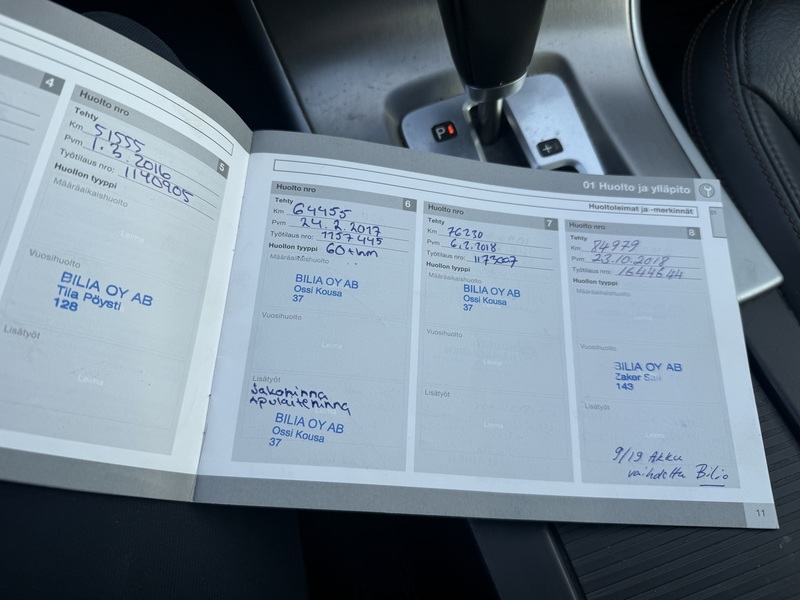 4
Huolto nro 5
Tehty
Km 51555
Pvm 1.3.2016
Työtilaus nro: 1140905
Huollon tyyppi
Määräaikaishuolto
Leima
Vuosihuolto
BILIA OY AB
Tiia Pöysti
128
Lisätyöt
Leima
01 Huolto ja ylläpito
Huoltoleimat ja -merkinnät
Huolto nro 6
Tehty
Km 64455
Pvm 24.2.2017
Työtilaus nro: 1157445
Huollon tyyppi 60tkm
Määräaikaishuolto
BILIA OY AB
Ossi Kousa
37
Vuosihuolto
Leima
Lisätyöt
Jakohinna
Apulaitehinna
BILIA OY AB
Ossi Kousa
37
Huolto nro 7
Tehty
Km 76230
Pvm 6.2.2018
Työtilaus nro: 1173007
Huollon tyyppi
Määräaikaishuolto
BILIA OY AB
Ossi Kousa
37
Vuosihuolto
Leima
Lisätyöt
Leima
Huolto nro 8
Tehty
Km 84979
Pvm 23.10.2018
Työtilaus nro: 1644644
Huollon tyyppi
Määräaikaishuolto
Vuosihuolto
BILIA OY AB
Zaker
143
Lisätyöt
9/19 Akku
vaihdettu Bilia
11
P
+